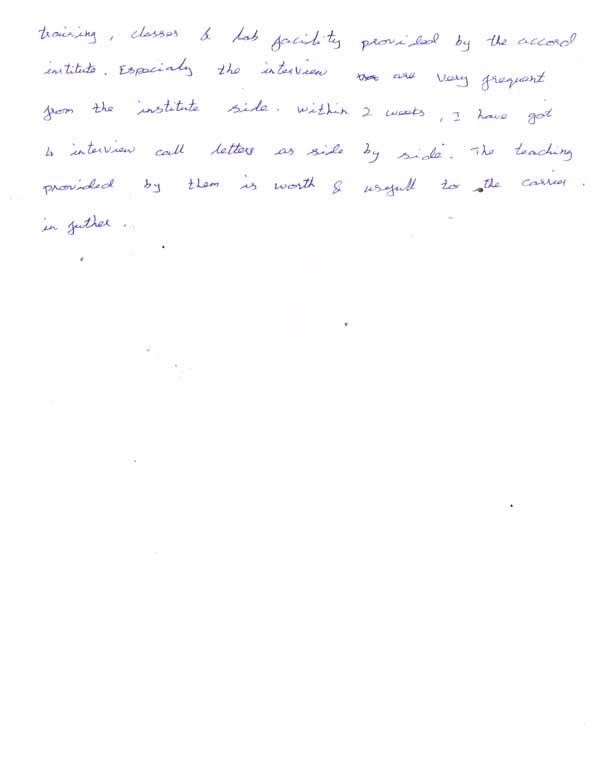 training, classes & lab facility provided by the accord
institute. Especialy the interview are very frequent
from the institute side. within 2 weeks, I have got
4 interview call letters as side by side. The teaching
provided by them is worth & usefull to the carrier.
in futher.